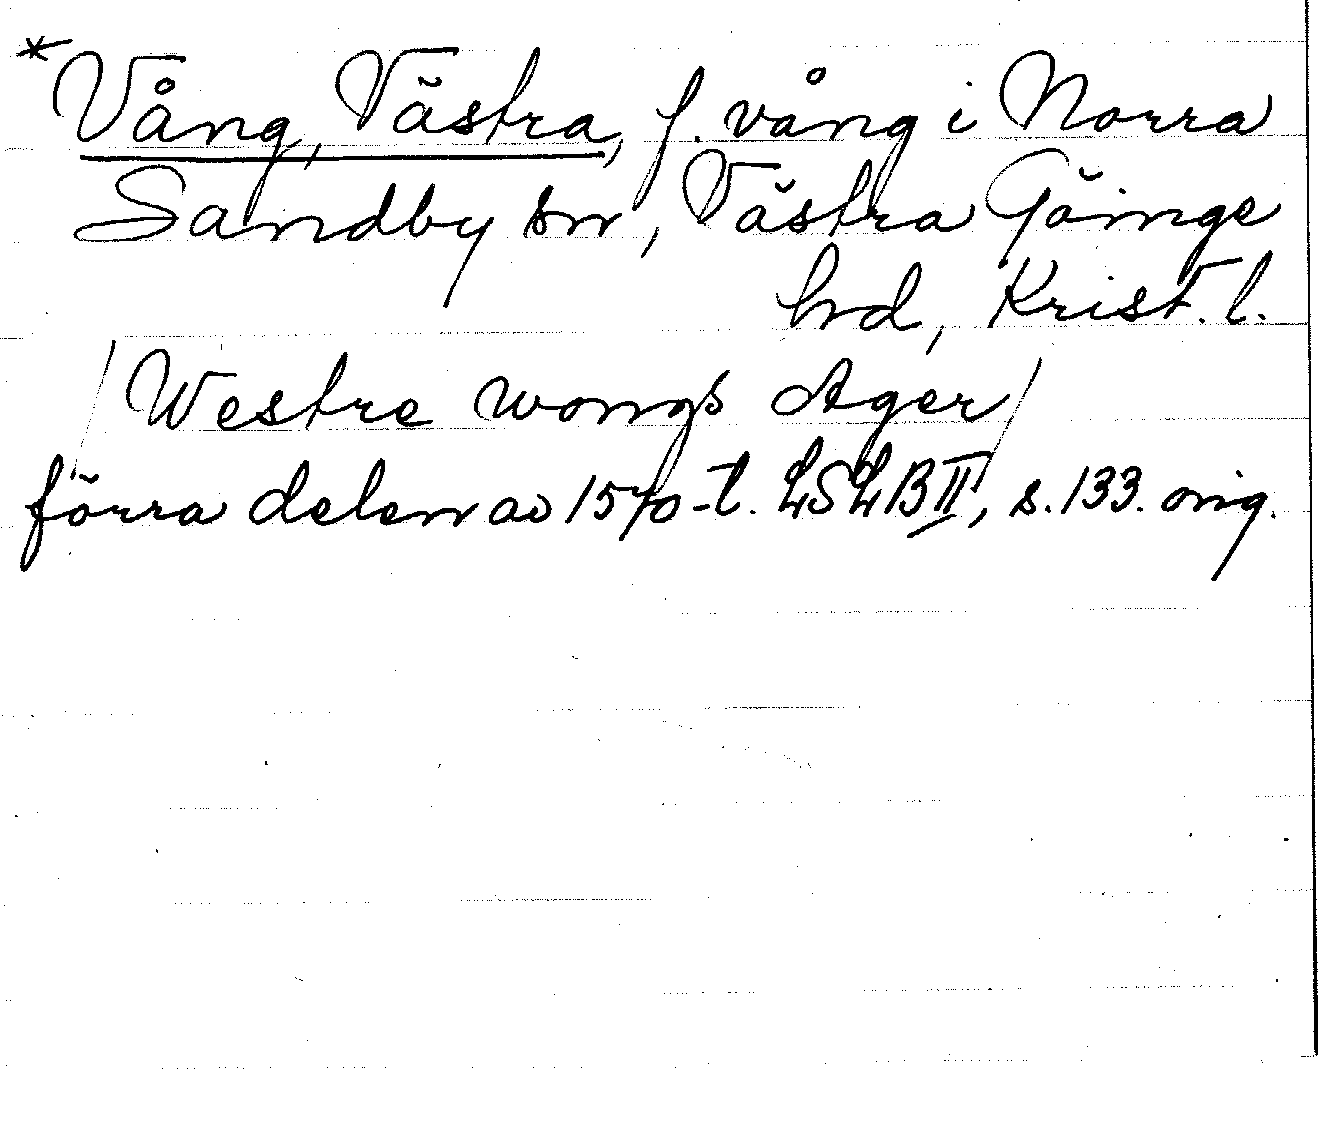 *Vång, Västra, f. vång i Norra
Sandby sn, Västra Göinge
hd, Krist. l.
/Westre wongs Ager/
förra delen av 1570-t. LSLB II, s. 133. orig.